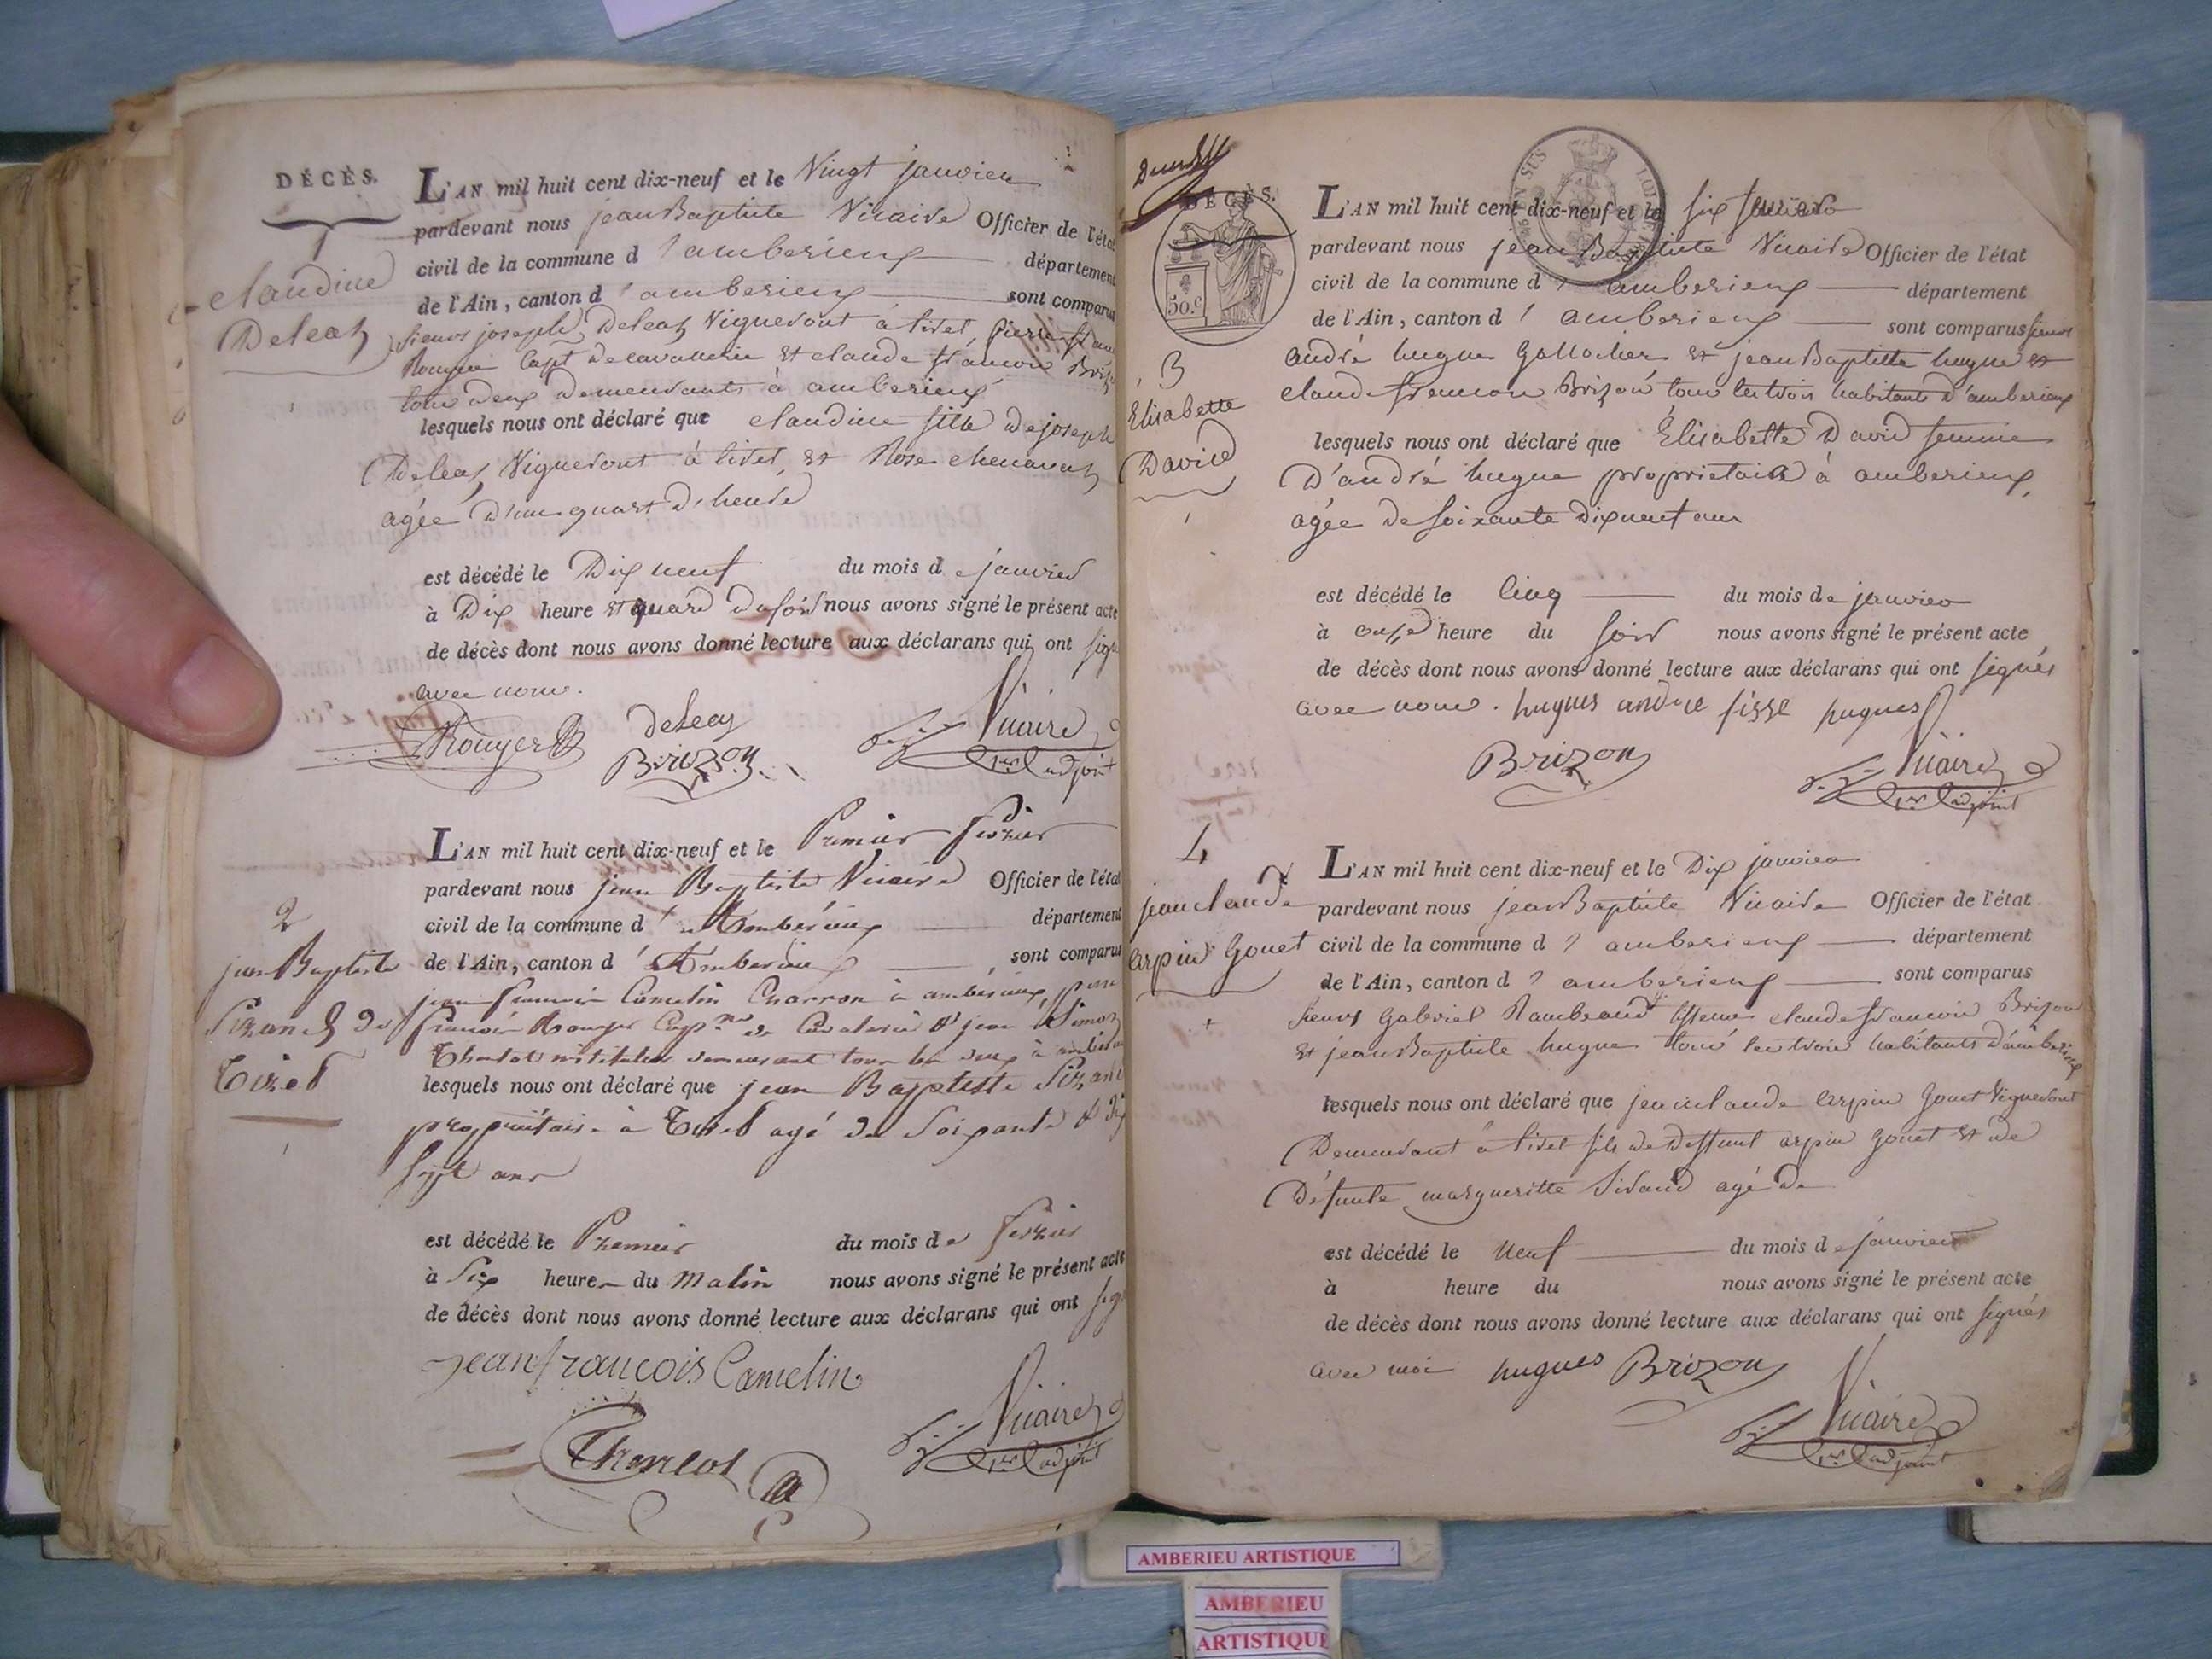 DÉCÈS.
1
claudine
Deleaz
L'AN mil huit cent dix-neuf et le Vingt janvier
pardevant nous jean Baptiste Vicaire Officier de l'état
civil de la commune d'amberieux département
de l'Ain, canton d'amberieux sont comparus
Sieurs joseph Deleaz Vigneront à tiret, pierre
Rougier Capt de cavallerie et claude françois Briz
tous deux demeurants à amberieux
lesquels nous ont déclaré que claudine fille de joseph
Deleaz Vigneront à tiret, et Rose chenavaz
agée d'un quart d'heure
est décédé le Dix neuf du mois de janvier
à Dix heure et quard du soir nous avons signé le présent acte
de décès dont nous avons donné lecture aux déclarans qui ont
avec nous.
Rougier deleaz
Brizon
Vicaire
1er adjoint
2
jean Baptiste
de
Tiret
L'AN mil huit cent dix-neuf et le Premier fevrier
pardevant nous jean Baptiste Vicaire Officier de l'état
civil de la commune d'Ambérieux département
de l'Ain, canton d'Ambérieux sont comparus
jean francois Camelin Charron à ambérieux, pierre
francois Rouger Capne de Cavalerie & jean Simon
instituteur demeurant tous les deux à
lesquels nous ont déclaré que jean Baptiste
propriétaire à Tiret agé de Soixante & dix
sept ans
est décédé le Premier du mois de fevrier
à Six heures du Matin nous avons signé le présent acte
de décès dont nous avons donné lecture aux déclarans qui ont
jean francois Camelin
Vicaire
1er adjoint
DÉCÈS.
50.c
3
Elisabette
David
L'AN mil huit cent dix-neuf et le six
pardevant nous jean Baptiste Vicaire Officier de l'état
civil de la commune d'amberieux département
de l'Ain, canton d'amberieux sont comparus sieurs
andré hugue et jean Baptiste hugue et
claude francois Brizon tous les trois habitants d'amberieux
lesquels nous ont déclaré que Élisabette David femme
D'andré hugue proprietaire à amberieux,
agée de soixante dixneuf ans
est décédé le Cinq du mois de janvier
à onze heure du soir nous avons signé le présent acte
de décès dont nous avons donné lecture aux déclarans qui ont signés
avec nous. hugues andre hugues
Brizon
Vicaire
1er adjoint
4
jean claude
arpin Gouet
L'AN mil huit cent dix-neuf et le Dix janvier
pardevant nous jean Baptiste Vicaire Officier de l'état
civil de la commune d'amberieux département
de l'Ain, canton d'amberieux sont comparus
sieurs Gabriel claude francois Brizon
et jean Baptiste hugue tous les trois habitants d'amberieux
lesquels nous ont déclaré que jean claude arpin Gouet Vigneront
Demeurant à tiret fils de deffunt arpin gouet et de
Défunte margueritte Sirand agé de
est décédé le neuf du mois de janvier
à heure du nous avons signé le présent acte
de décès dont nous avons donné lecture aux déclarans qui ont signés
avec moi hugues Brizon
Vicaire
1er adjoint
AMBERIEU ARTISTIQUE
AMBERIEU
ARTISTIQUE